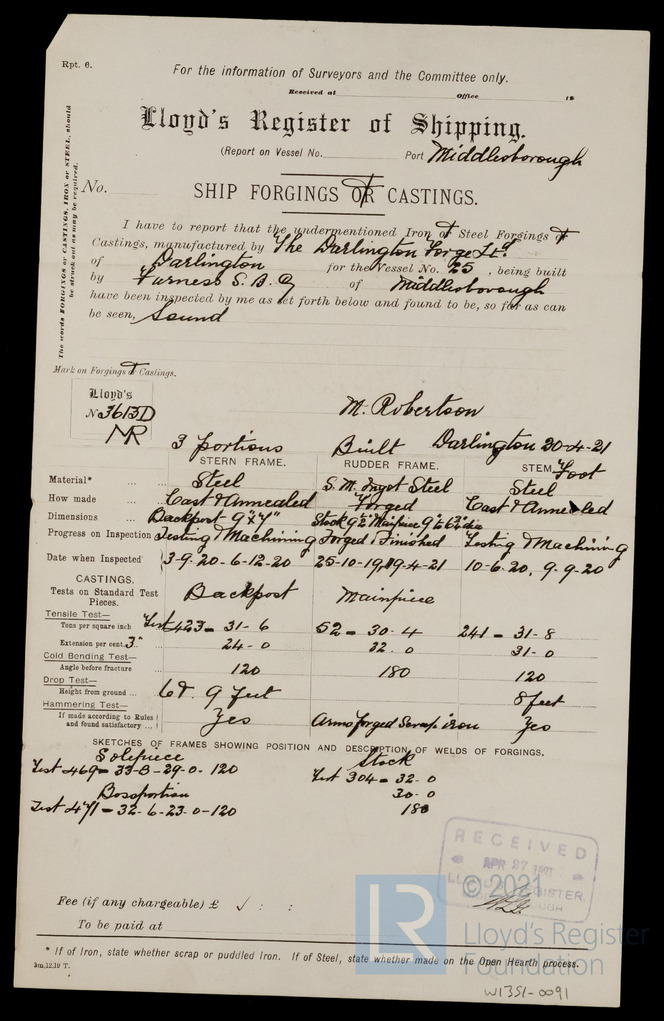 Rpt. 6.
For the information of Surveyors and the Committee only.
Received at Office 19
Lloyd's Register of Shipping.
(Report on Vessel No. Port Middlesborough
No.
SHIP FORGINGS or CASTINGS.
The words FORGINGS or CASTINGS, IRON or STEEL, should be struck out as may be required.
I have to report that the undermentioned Iron & Steel Forgings &
Castings, manufactured by The Darlington Forge Ltd
of Darlington for the Vessel No. 25, being built
by Furness S.B. Co of Middlesborough
have been inspected by me as set forth below and found to be, so far as can
be seen, Sound
Mark on Forgings & Castings.
Lloyd's
No 3613D
MR
M. Robertson
3 portions Built Darlington 30-4-21
STERN FRAME. RUDDER FRAME. STEM Foot
Material* ... Steel S. M. Ingot Steel Steel
How made ... Cast & Annealed Forged Cast & Annealed
Dimensions ... Backpost - 9"x7" Stock 9½" Mainpiece 9" to 6¾" dia
Progress on Inspection Testing & Machining Forged & Finished Testing & Machining
Date when Inspected 3-9-20 - 6-12-20 25-10-19, 19-4-21 10-6-20, 9-9-20
CASTINGS.
Tests on Standard Test Pieces. Backpost Mainpiece
Tensile Test—
Tons per square inch Test 423 - 31-6 52 - 30-4 241 - 31-8
Extension per cent. 3" 24-0 32-0 31-0
Cold Bending Test—
Angle before fracture 120 180 120
Drop Test—
Height from ground ... 6 & 9 feet 8 feet
Hammering Test—
If made according to Rules and found satisfactory ... Yes Arms forged Scrap iron Yes
SKETCHES OF FRAMES SHOWING POSITION AND DESCRIPTION OF WELDS OF FORGINGS.
Solepiece Stock
Test 469 - 33-8-29-0-120 Test 304 - 32-0
Bossportion 30-0
Test 471 - 32-6-23-0-120 180
RECEIVED
APR 27
LLOYD'S REGISTER,
© 2021
LR
Lloyd's Register
Foundation
Fee (if any chargeable) £ ✓ : :
To be paid at
* If of Iron, state whether scrap or puddled Iron. If of Steel, state whether made on the Open Hearth process.
3m,12,19 T.
W1351-0091